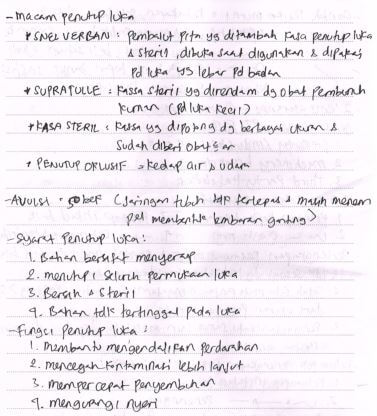 - Macam penutup luka
* SNELVERBAN : Pembalut pita yg ditambah kasa penutup luka
& steril, dibuka saat digunakan & dipakai
Pd luka yg lebar Pd badan
* SUPRATULLE : kassa steril yg direndam dg obat Pembunuh
kuman (Pd luka kecil)
* KASA STERIL : Kasa yg dipotong dg berbagai ukuran &
Sudah diberi obatan
* PENUTUP OKLUSIF = kedap air & udara
- AVULSI : sobek (Jaringan tubuh tdk terlepas & masih menem
pel membentuk lembaran gantung)
- Syarat Penutup luka :
1. Bahan bersifat menyerap
2. menutupi Seluruh permukaan luka
3. Bersih & Steril
4. Bahan tdk tertinggal pada luka
- Fungsi Penutup luka :
1. Membantu mengendalikan perdarahan
2. mencegah kontaminasi lebih lanjut
3. mempercepat Penyembuhan
4. mengurangi nyeri